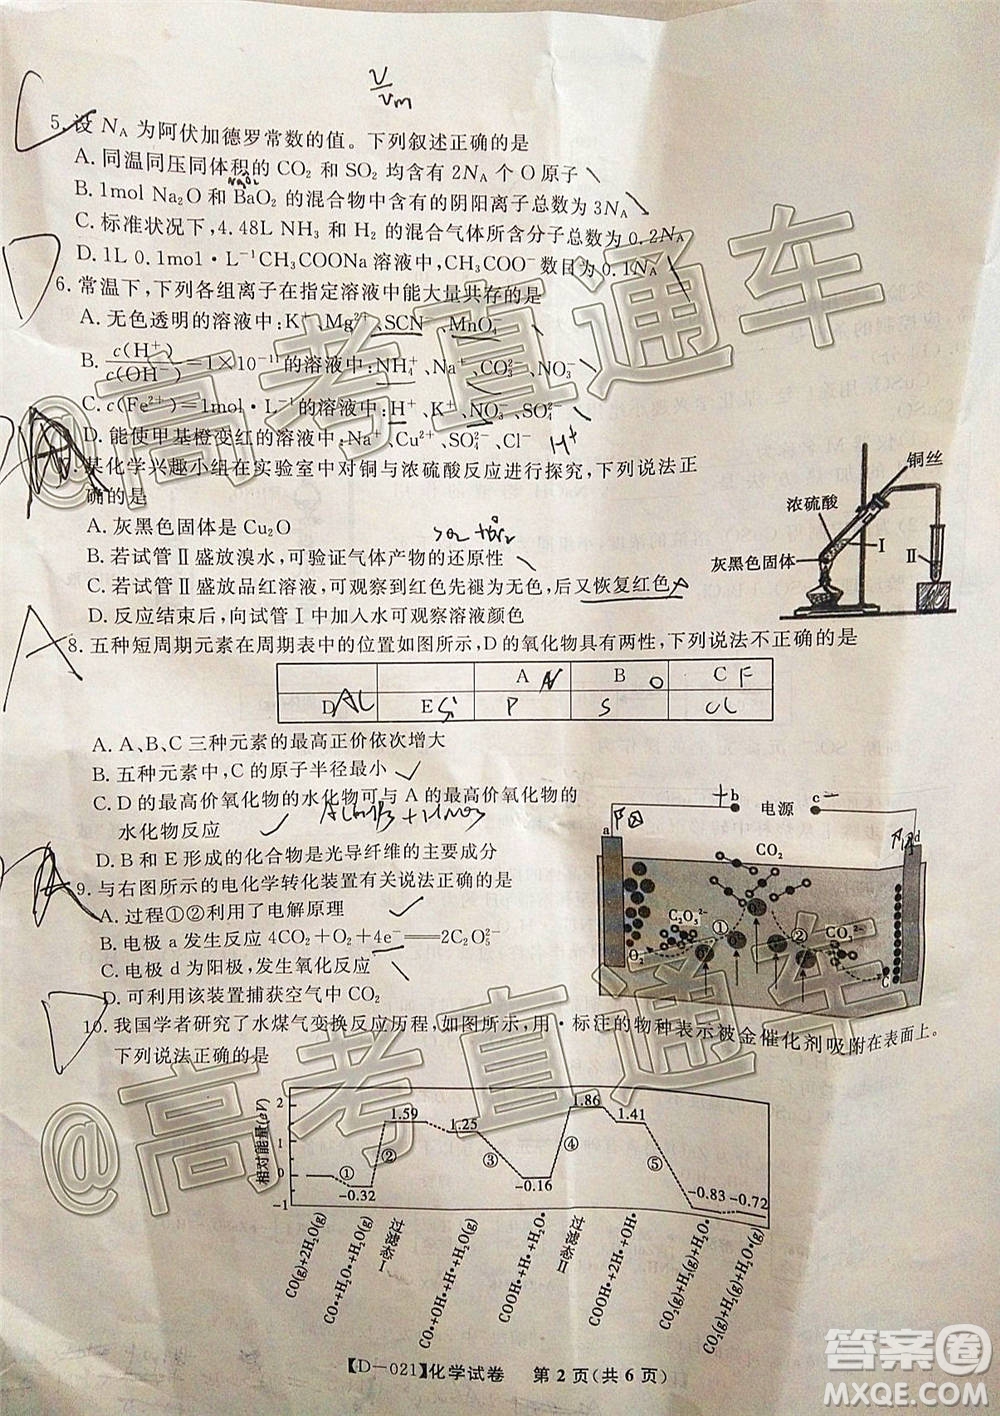 V/Vm
C
5. 设 NA 为阿伏加德罗常数的值。下列叙述正确的是
A. 同温同压同体积的 CO₂ 和 SO₂ 均含有 2NA 个 O 原子
B. 1mol Na₂O 和 BaO₂ 的混合物中含有的阴阳离子总数为 3NA
Na₂O₂
C. 标准状况下，4.48L NH₃ 和 H₂ 的混合气体所含分子总数为 0.2NA
D. 1L 0.1mol·L⁻¹CH₃COONa 溶液中，CH₃COO⁻ 数目为 0.1NA
D
6. 常温下，下列各组离子在指定溶液中能大量共存的是
A. 无色透明的溶液中：K⁺、Mg²⁺、SCN⁻、MnO₄⁻
B. c(H⁺)/c(OH⁻)=1×10⁻¹¹的溶液中：NH₄⁺、Na⁺、CO₃²⁻、NO₃⁻
C. c(Fe²⁺)=1mol·L⁻¹的溶液中：H⁺、K⁺、NO₃⁻、SO₄²⁻
D. 能使甲基橙变红的溶液中：Na⁺、Cu²⁺、SO₄²⁻、Cl⁻
H⁺
7. 某化学兴趣小组在实验室中对铜与浓硫酸反应进行探究，下列说法正
确的是
A. 灰黑色固体是 Cu₂O
SO₂+Br₂
B. 若试管Ⅱ盛放溴水，可验证气体产物的还原性
C. 若试管Ⅱ盛放品红溶液，可观察到红色先褪为无色，后又恢复红色
D. 反应结束后，向试管Ⅰ中加入水可观察溶液颜色
铜丝
浓硫酸
Ⅰ
Ⅱ
灰黑色固体
A
8. 五种短周期元素在周期表中的位置如图所示，D 的氧化物具有两性，下列说法不正确的是
A N B O C F
D Al E Si P S Cl
A. A、B、C 三种元素的最高正价依次增大
B. 五种元素中，C 的原子半径最小
C. D 的最高价氧化物的水化物可与 A 的最高价氧化物的
水化物反应
D. B 和 E 形成的化合物是光导纤维的主要成分
9. 与右图所示的电化学转化装置有关说法正确的是
A. 过程①②利用了电解原理
B. 电极 a 发生反应 4CO₂+O₂+4e⁻═2C₂O₅²⁻
C. 电极 d 为阳极，发生氧化反应
D. 可利用该装置捕获空气中 CO₂
+ b 电源 c −
a 阳
d
CO₂
C₂O₅²⁻
①
②
CO₃²⁻
O₂
C
D
10. 我国学者研究了水煤气变换反应历程，如图所示，用·标注的物种表示被金催化剂吸附在表面上。
下列说法正确的是
相对能量(eV)
2
1
0
-1
①
-0.32
②
1.59
1.25
③
-0.16
④
1.86
1.41
⑤
-0.83
-0.72
CO(g)+2H₂O(g)
CO•+H₂O•+H₂O(g)
过渡态Ⅰ
CO•+OH•+H•+H₂O(g)
COOH•+H•+H₂O•
过渡态Ⅱ
COOH•+2H•+OH•
CO₂(g)+H₂(g)+H₂O•
CO₂(g)+H₂(g)+H₂O•(g)
【D—021】化学试卷 第 2 页(共 6 页)
@高考直通车
@高考直通车
答案圈
MXQE.COM